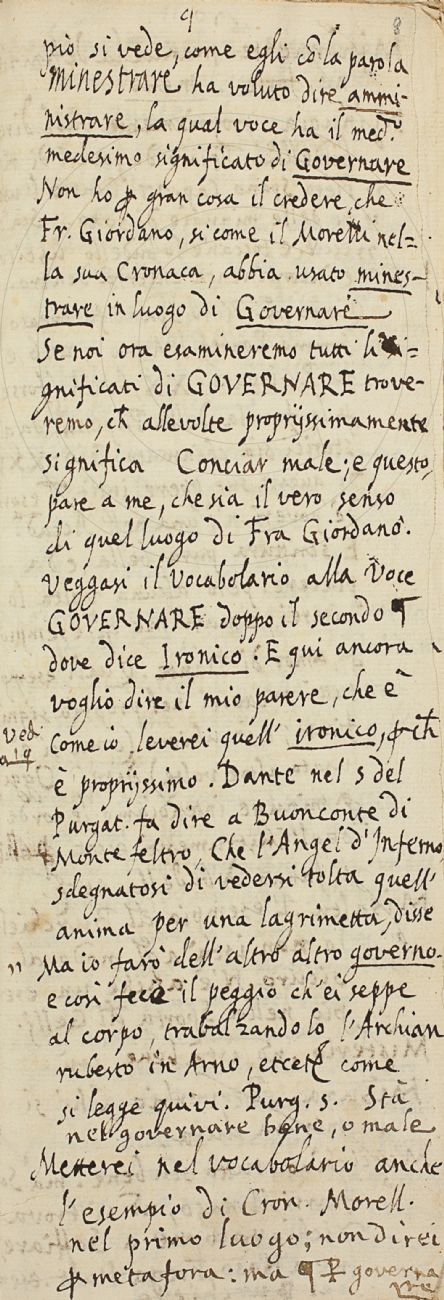 9 8
piò si vede, come egli cō la parola
minestrare ha voluto dire ammi-
nistrare, la qual voce ha il med.º
medesimo significato di Governare
Non ho ꝑ gran cosa il credere, che
Fr. Giordano, sì come il Morelli nel=
la sua Cronaca, abbia usato mines-
trare in luogo di Governare
Se noi ora esamineremo tutti li si=
gnificati di GOVERNARE trove-
remo, ch̄ allevolte proprijssimamente
significa Conciar male; e questo,
pare a me, che sia il vero senso
di quel luogo di Fra Giordano.
Veggasi il Vocabolario alla Voce
GOVERNARE doppo il secondo ¶
dove dice Ironico. E qui ancora
voglio dire il mio parere, che è
Ved.
come io leverei quell' ironico, ꝑch̄
è proprijssimo. Dante nel 5 del
Purgat. fa dire a Buonconte di
Monte feltro, Che l'Angel d'Inferno,
sdegnatosi di vedersi tolta quell'
anima per una lagrimetta, disse
" Ma io farò dell'altro altro governo.
e così fece il peggio ch'ei seppe
al corpo, trabalzandolo l'Archian
rubesto in Arno, etcet. come
si legge quivi. Purg. 5. Stà
nel governare bene, o male
Metterei nel vocabolario anche
l'esempio di Cron. Morell.
nel primo luogo; non direi
ꝑ metafora: ma ¶ ꝑ governa
re